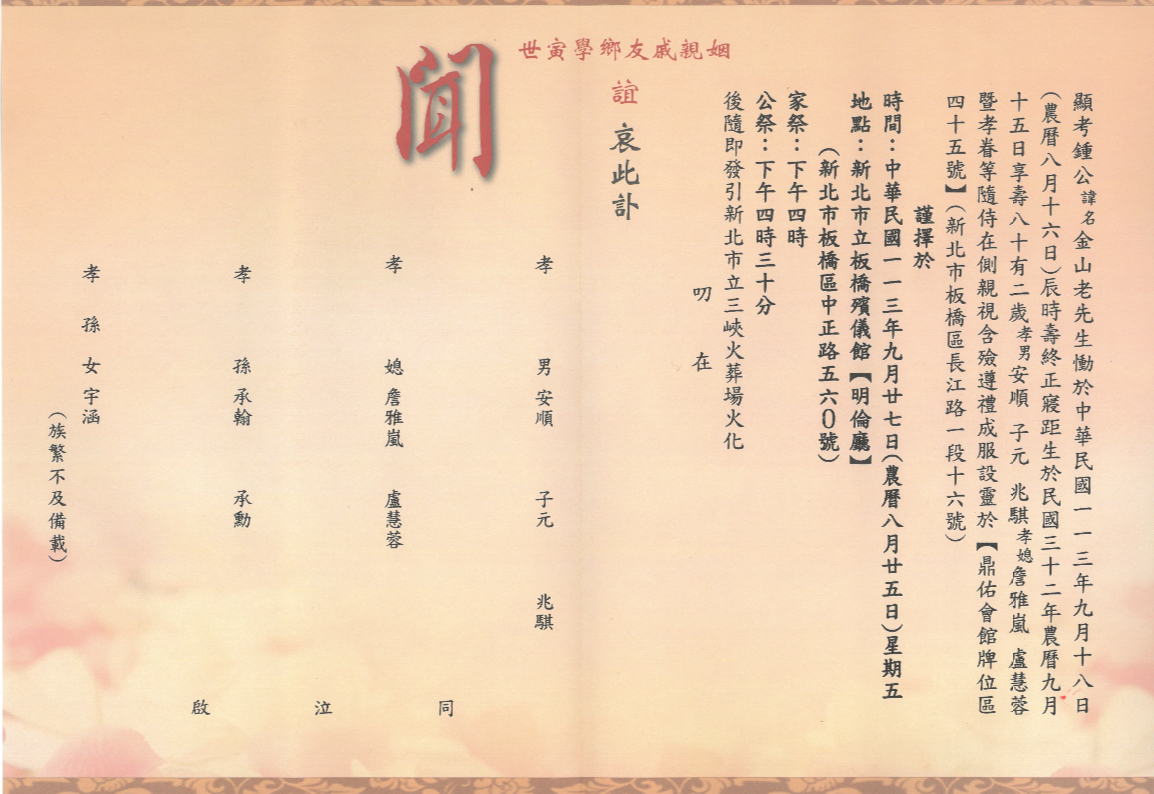 顯考鍾公諱名金山老先生慟於中華民國一一三年九月十八日
（農曆八月十六日）辰時壽終正寢距生於民國三十二年農曆九月
十五日享壽八十有二歲孝男安順 子元 兆騏孝媳詹雅嵐 盧慧蓉
暨孝眷等隨侍在側親視含殮遵禮成服設靈於【鼎佑會館牌位區
四十五號】（新北市板橋區長江路一段十六號）
謹擇於
時間：中華民國一一三年九月廿七日（農曆八月廿五日）星期五
地點：新北市立板橋殯儀館【明倫廳】
（新北市板橋區中正路五六0號）
家祭：下午四時
公祭：下午四時三十分
後隨即發引新北市立三峽火葬場火化
叨 在
世寅學鄉友戚親姻
誼 哀此訃
聞
孝 男 安順 子元 兆騏
孝 媳 詹雅嵐 盧慧蓉
孝 孫 承翰 承勳
孝 孫 女 宇涵
（族繁不及備載）
同 泣 啟